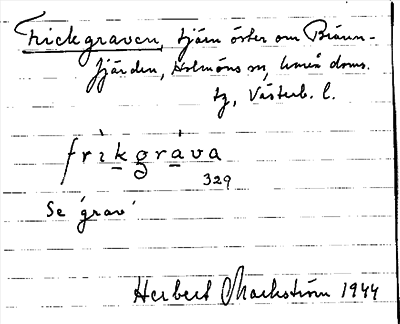 Frickgraven, tjärn öster om Bränn-
fjärden, Holmöns sn, Umeå doms.
tg, Västerb. l.
frìkgráva
329
Se 'grav'
Herbert Markström 1944